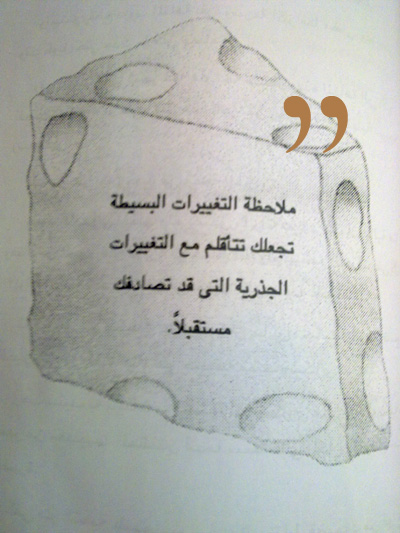 ”
ملاحظة التغييرات البسيطة
تجعلك تتأقلم مع التغييرات
الجذرية التى قد تصادفك
مستقبلاً.